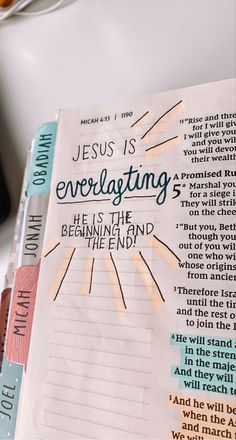 MICAH 4:13 | 1190
JESUS IS
everlasting
HE IS THE
BEGINNING AND
THE END!
OBADIAH
JONAH
MICAH
JOEL
13 "Rise and thre
for I will give
I will give you
and you will
You will devot
their wealth
A Promised Ru
5 a Marshal you
for a siege i
They will strik
on the cheek
2 b "But you, Beth
though you
out of you will
one who wi
whose origins
from ancien
3 Therefore Israel
until the tin
and the rest o
to join the I
4 He will stand
in the stren
in the majes
And they will
will reach t
5 And he will be
when the A
and march
We will